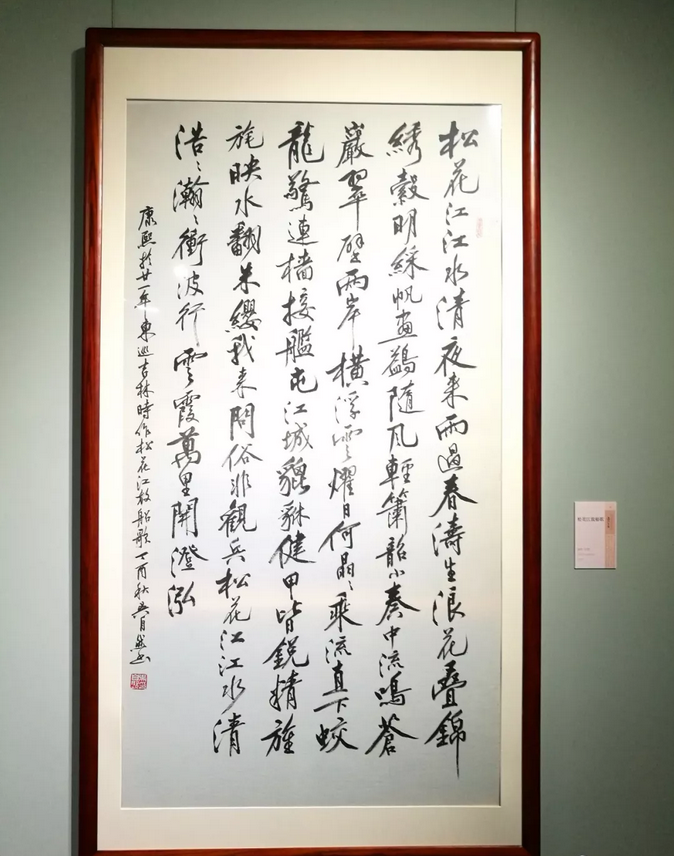 松花江江水清夜来雨過春濤生浪花疊錦
綉縠明綵帆畫鷁隨風輕簫韶小奏中流鳴蒼
巖翠壁兩岸橫浮雲耀日何晶々乘流直下蛟
龍驚連檣接艦屯江城貔貅健甲皆銳精旌
旄映水翻朱纓我来問俗非觀兵松花江江水清
浩々瀚々衝波行雲霞萬里開澄泓
康熙於廿一年東巡吉林時作松花江放船歌丁酉秋